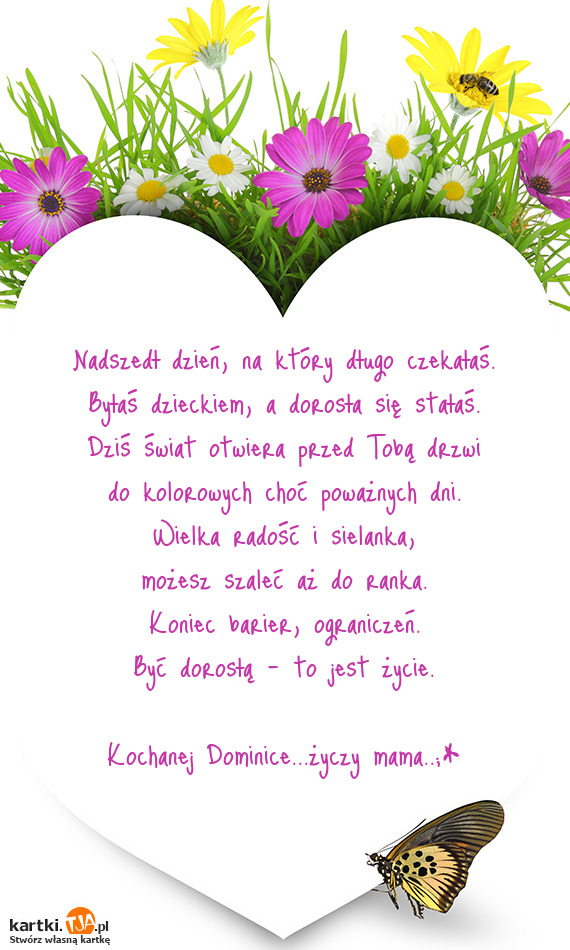 Nadszedł dzień, na który długo czekałaś.
Byłaś dzieckiem, a dorosła się stałaś.
Dziś świat otwiera przed Tobą drzwi
do kolorowych choć poważnych dni.
Wielka radość i sielanka,
możesz szaleć aż do ranka.
Koniec barier, ograniczeń.
Być dorosłą - to jest życie.
Kochanej Dominice...życzy mama..;*
kartki.TJA.pl
Stwórz własną kartkę